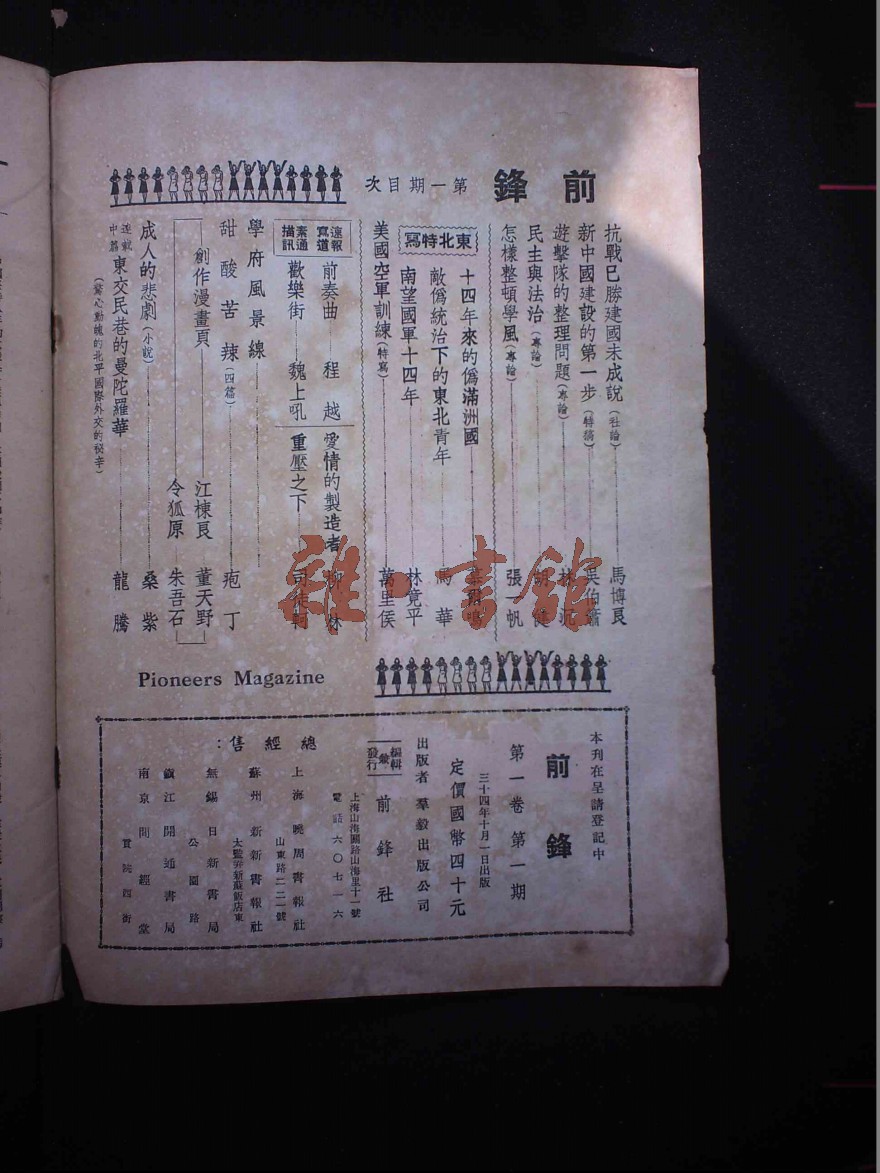 前鋒
第一期目次
抗戰已勝建國未成說(社論) 馬博良
新中國建設的第一步(特稿) 吳伯簫
遊擊隊的整理問題(專論) 林沉
民主與法治(專論) 健
怎樣整頓學風(專論) 張一帆
東北特寫
十四年來的僞滿洲國
敵僞統治下的東北青年 馬華
南望國軍十四年 林竟平
美國空軍訓練(特寫) 萬里侯
速寫報道
素描通訊
前奏曲 程越
愛情的製造者 柳林
歡樂街 魏上吼
重壓之下 司徒珂
學府風景線
甜酸苦辣(四篇) 疱丁
創作漫畫頁 江棟良 董天野
令狐原 朱吾石
成人的悲劇(小說) 桑紫
連載中篇 東交民巷的曼陀羅華 龍騰
(驚心動魄的北平國際外交的秘辛)
Pioneers Magazine
本刊在呈請登記中
前鋒
第一卷第一期
三十四年十月一日出版
定價國幣四十元
出版者 羣毅出版公司
編輯兼發行 前鋒社
上海山海關路山海里十一號
電話六〇七一六
總經售：
上海晚周書報社
山東路二二一號
蘇州新新書報社
太監弄新蘇飯店東
無錫日新書局
公園路
鎮江開通書局
南京開經堂
貢院西街
雜·書館